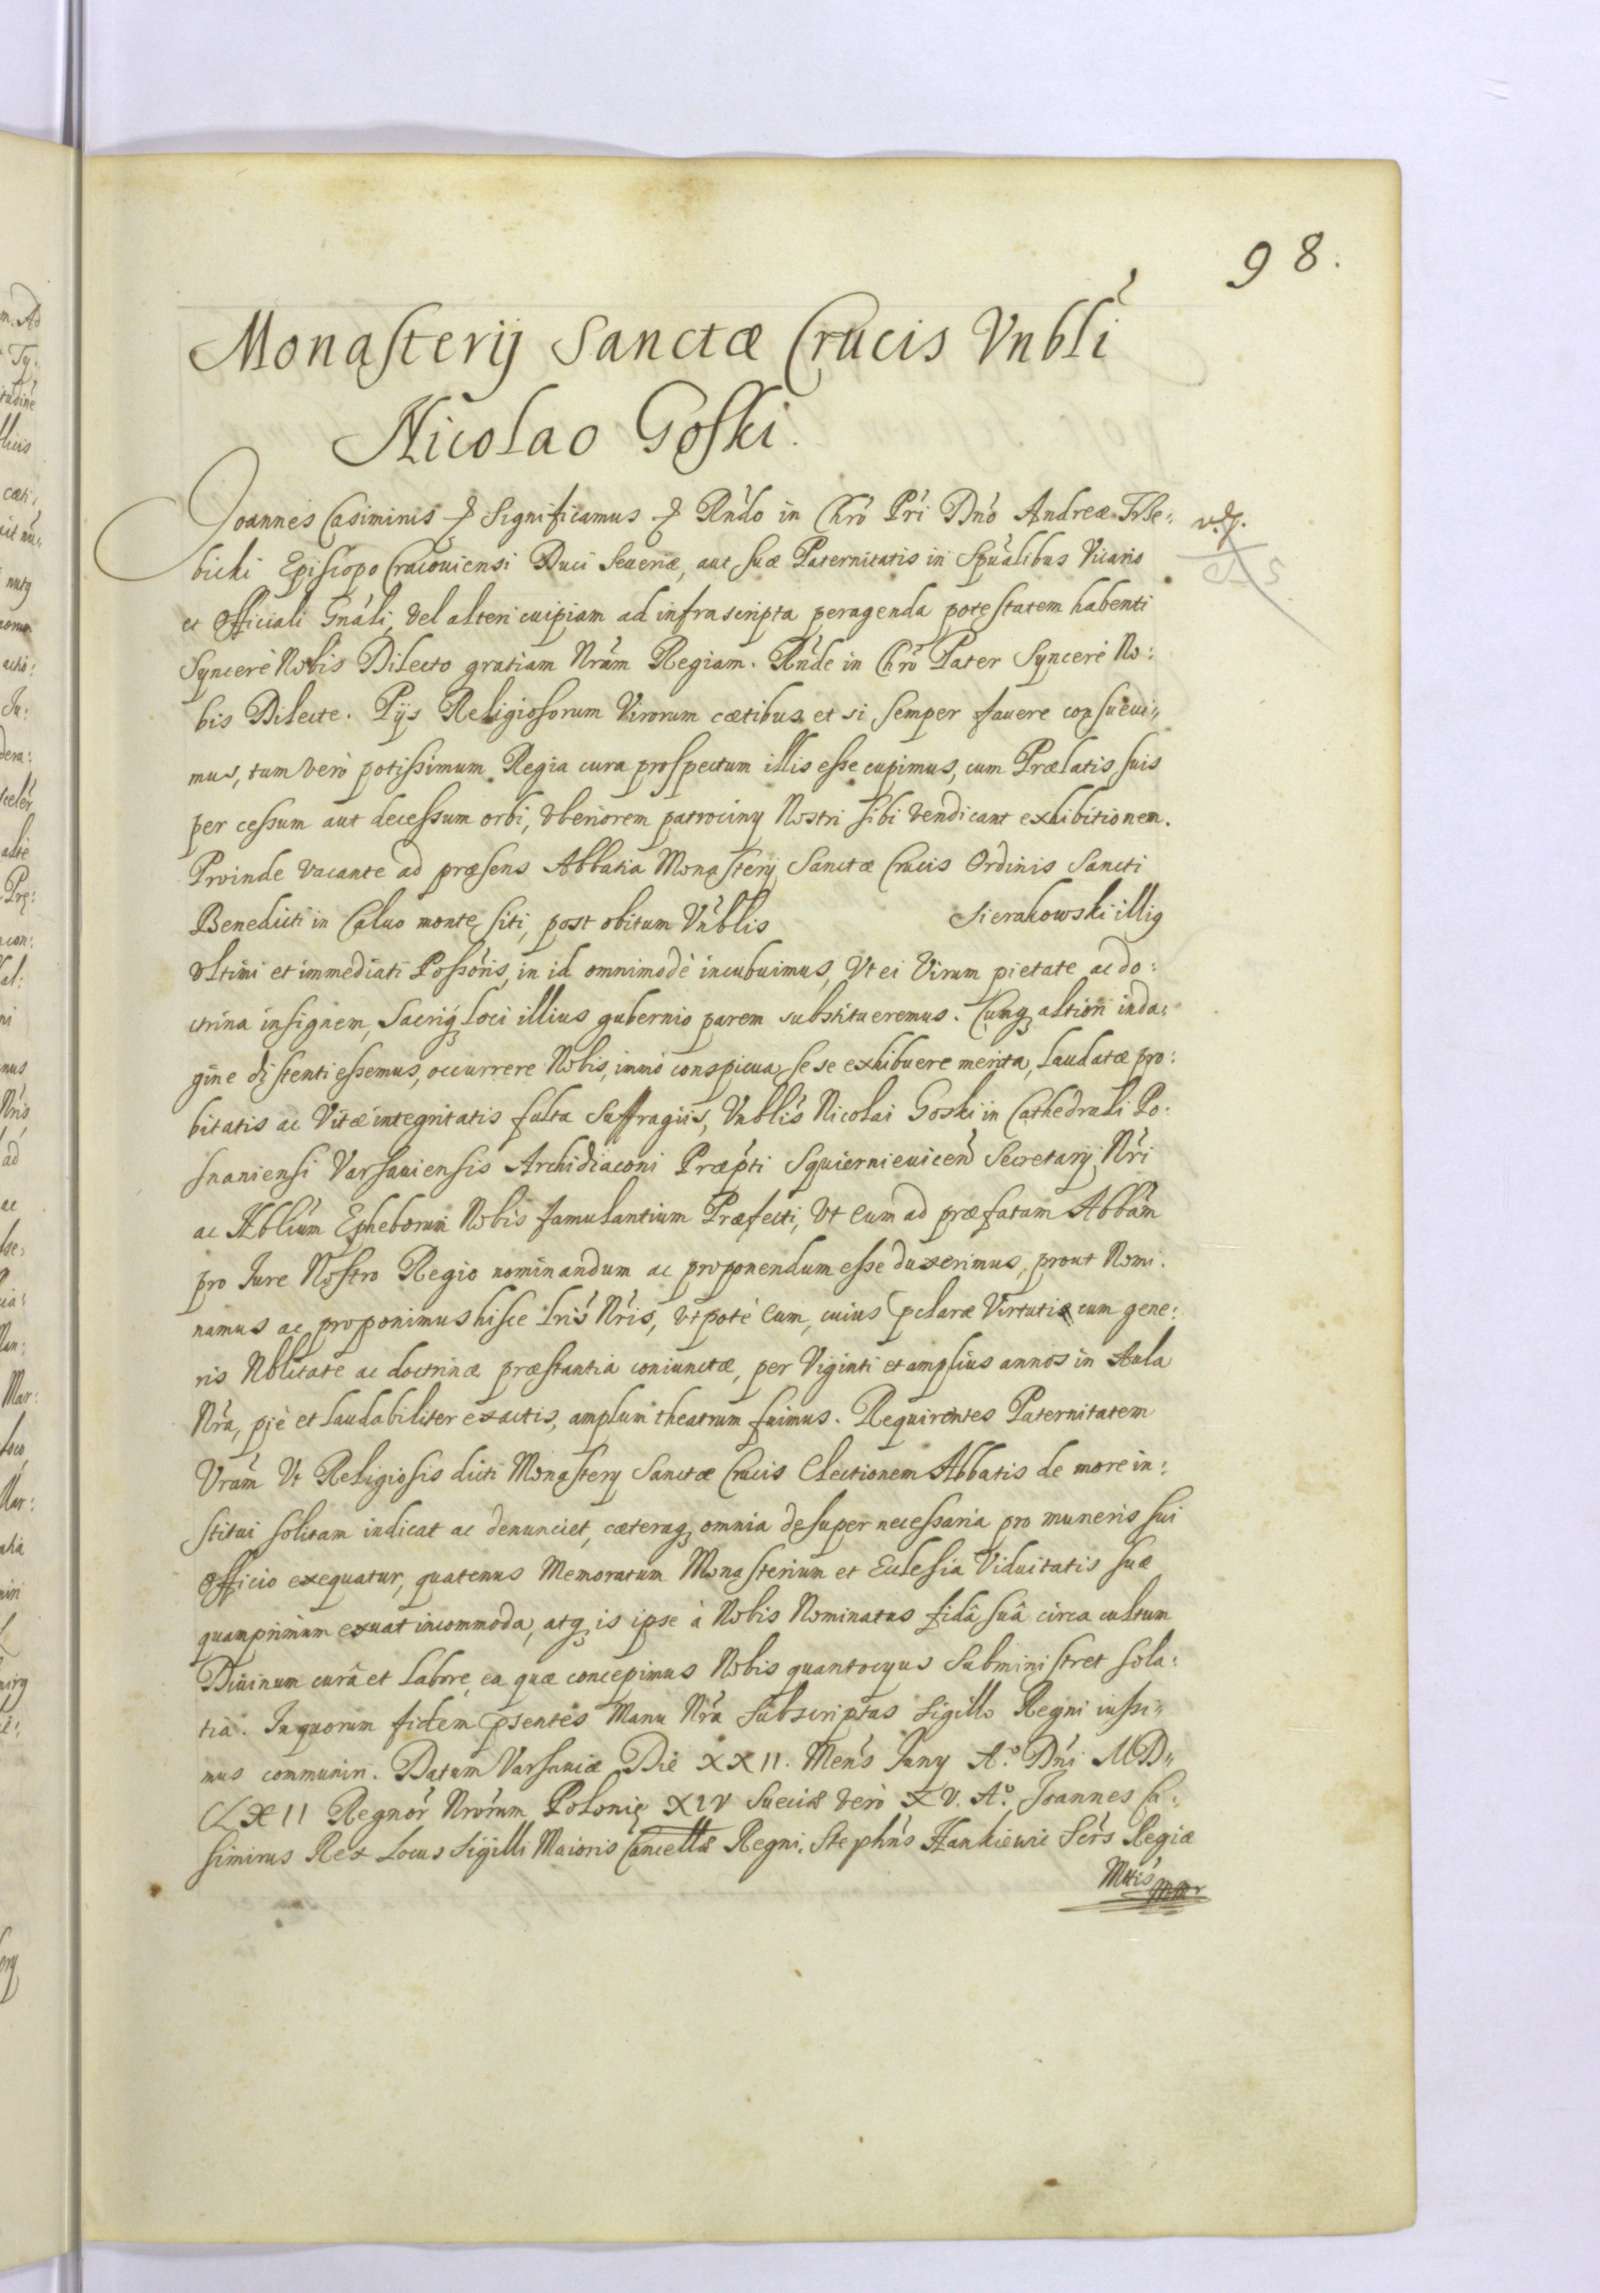 98.
Monasterij Sanctæ Crucis Vnbli
Nicolao Goski.
Joannes Casimirus & Significamus & Rndo in Chro Pri Dno Andreæ Trse:
bicki Episcopo Cracoviensi Duci Seueriæ, aut suæ Paternitatis in Spualibus Vicario
et Officiali Gnali, vel alteri cuipiam ad infra scripta peragenda potestatem habenti
Syncerè Nobis Dilecto gratiam Nram Regiam. Rnde in Chro Pater Syncerè No:
bis Dilecte. Pijs Religiosorum Virorum cætibus et si semper fauere consueui„
mus, tum verò potissimum Regia cura prospectum illis esse cupimus, cum Prælatis suis
per cessum aut decessum orbi, vberiorem patrociny Nostri sibi vendicant exhibitionem.
Proinde vacante ad præsens Abbatia Monastery Sanctæ Crucis Ordinis Sancti
Benedicti in Caluo monte siti, post obitum Vnblis Sierakowski illig
vltimi et immediati Possoris, in id omnimodè incubuimus, Vt ei Virum pietate ac do:
ctrina insignem, Sacriq loci illius gubernio parem substitueremus. Cumq altiori inda:
gine distenti essemus, occurrere Nobis, immò conspicua sese exhibuere merita, laudatæ pro:
bitatis ac Vitæ integritatis fulta Suffragiis, Vnblis Nicolai Goski in Cathedrali Po:
snaniensi Varsauiensis Archidiaconi Præpti Squierniewicen Secretary Nri
ac Nblium Epheborum Nobis famulantium Præfecti, Vt Eum ad præfatam Abbam
pro Jure Nostro Regio nominandum ac proponendum esse duxerimus, prout Nomi:
namus ac proponimus hisce lris Nris, Vtpotè Eum, cuius pclaræ Virtutis cum gene:
ris Nblitate ac doctrinæ præstantia coniunctæ, per Viginti et amplius annos in Aula
Nra, piè et laudabiliter exactis, amplum theatrum fuimus. Requirentes Paternitatem
Vram Vt Religiosis dicti Monastery Sanctæ Crucis Electionem Abbatis de more in:
stitui solitam indicat ac denunciet, cæteraq omnia desuper necessaria pro muneris sui
Officio exequatur, quatenus Memoratum Monasterium et Ecclesia Viduitatis suæ
quamprimum exuat incommoda, atq is ipse à Nobis Nominatus fidâ suâ circa cultum
Diuinum curâ et labore, ea quæ concepimus Nobis quantocyus Subministret sola:
tia. In quorum fidem psentes Manu Nra Subscriptas Sigillo Regni iussi„
mus communiri. Datum Varsauiæ Die XXII. Mens Juny Aº. Dni MD„
CLXII Regnor Nrorum Poloniæ XIV Sueciæ verò XV. Aº. Joannes Ca:
simirus Rex Locus Sigilli Maioris Cancellæ Regni. Stephns Hankiewic Scrs Regiæ
Mttis